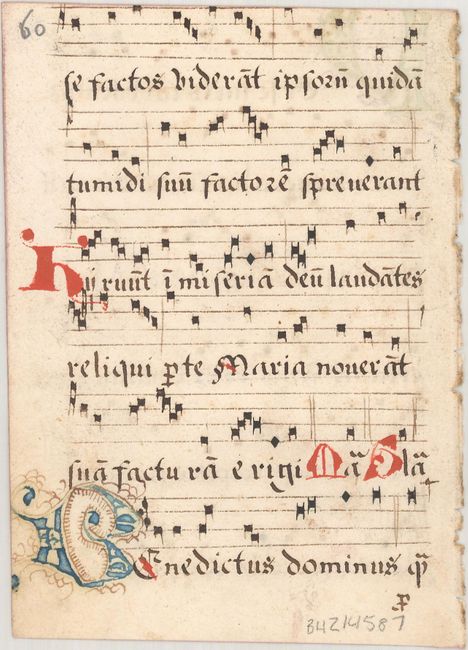 60
se factos viderāt ipsorū quidā
tumidi suū factorē spreverant
Hii ruūt ī miseriā deū laudātes
reliqui p te Maria noverāt
suā facturā erigi Mā
Benedictus dominus q̄
B4Z14587